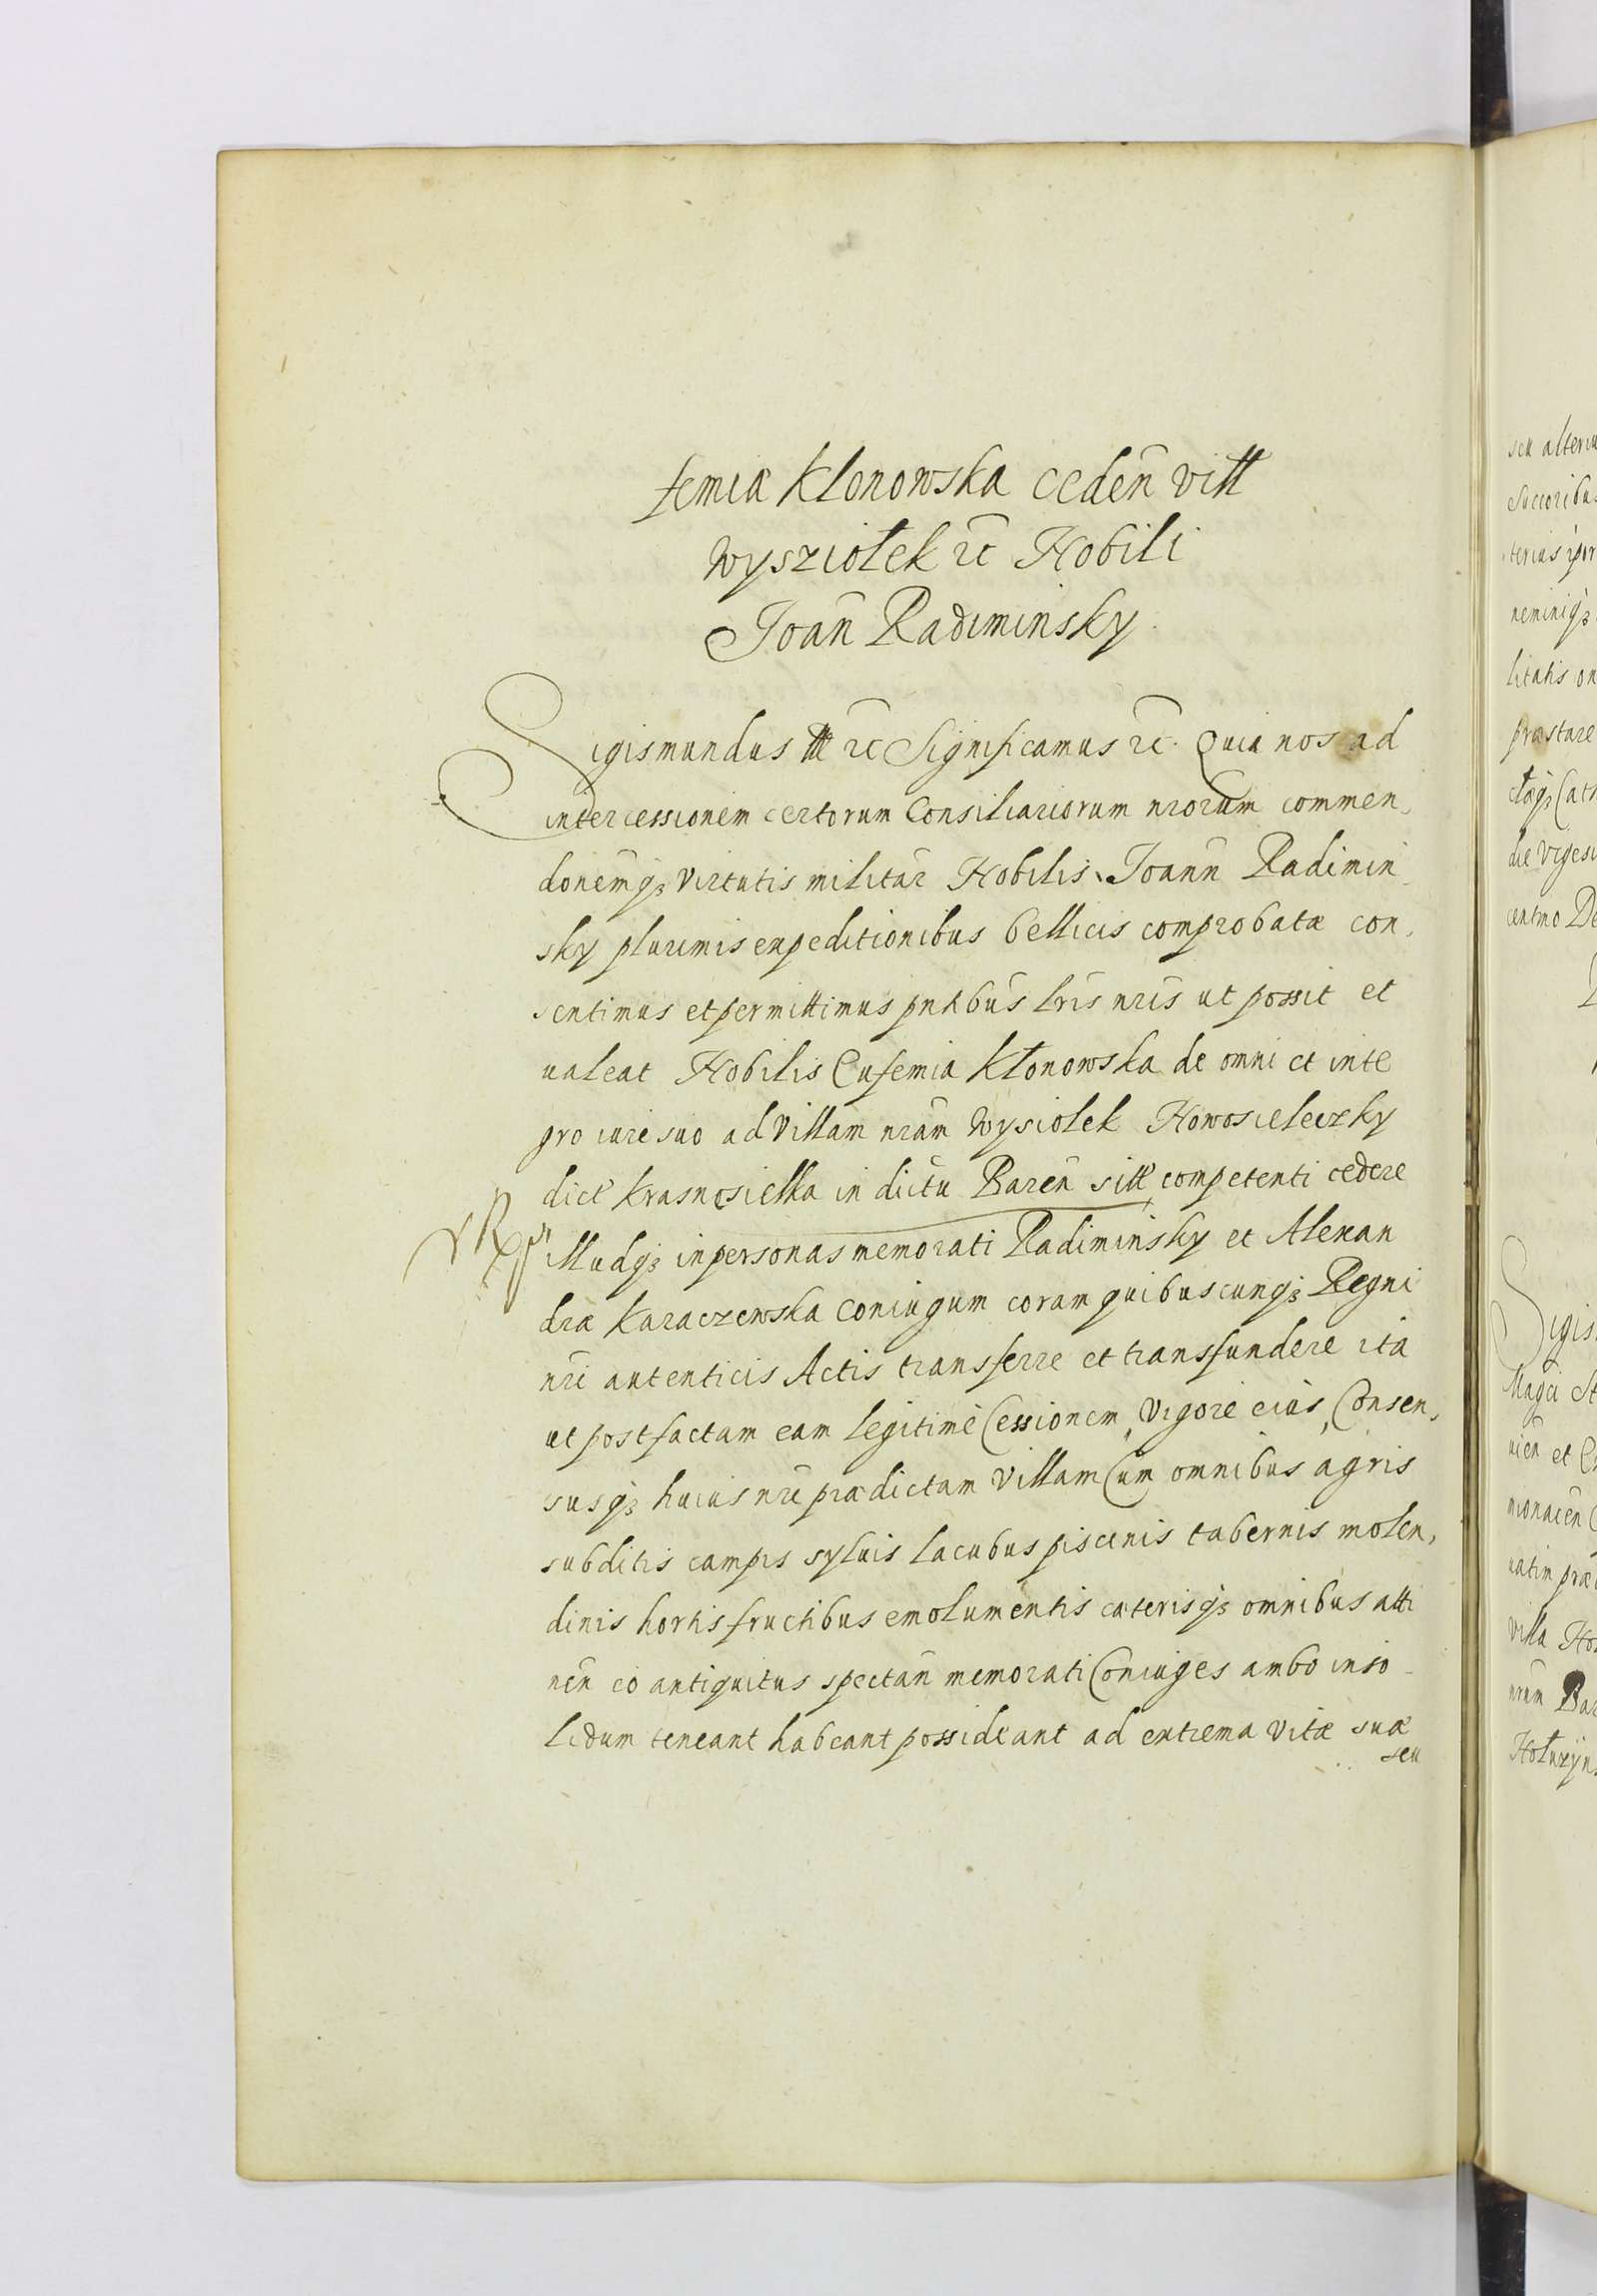 femia Kłonowska cedeñ vill
Wysziołek rc̃ Nobili
Joañ Radiminsky.
Sigismundus III rc̃ Significamus rc̃. Quia nos ad
intercessionem certorum Consiliariorum nrorum commen,
donemqȝ virtutis militar̃ Nobilis Joann̄ Radimin
sky plurimis expeditionibus bellicis comprobatæ con,
sentimus et permittimus pntibus lris nris ut possit et
ualeat Nobilis Eufemia Kłonowska de omni et inte
gro iure suo ad Villam nram Wysiołek Nowosieleczky
dict Krasnosielka in dictu Bareñ sitt competenti cedere
illudqȝ in personas memorati Radiminsky et Alexan
dræ Karaczewska Coniugum coram quibuscunqȝ Regni
nri autenticis Actis transferre et transfundere ita
ut post factam eam legitime Cessionem, Vigore eius, Consen,
susqȝ huius nri prædictam Villam Cum omnibus agris
subditis campis syluis lacubus piscinis tabernis molen,
dinis hortis fructibus emolumentis cæterisqȝ omnibus atti
neñ eo antiquitus spectañ memorati Coniuges ambo inso
lidum teneant habeant possideant ad extrema vitæ suæ
seu
seu alteriu
Succoribus
terius
neminiqȝ
litatis on
præstare
die Vigesi
centmo De
Sigis
Magci St
nieñ et
monaceñ
uatim præ
Villa No
nrum Bar